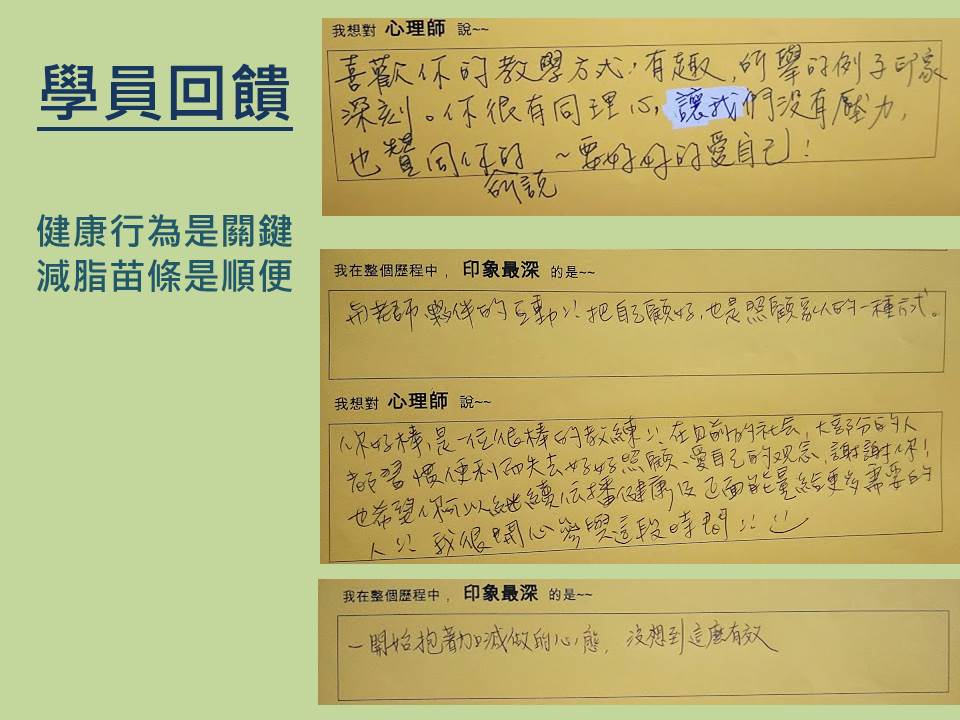 學員回饋
健康行為是關鍵
減脂苗條是順便
我想對 心理師 說~~
喜歡你的教學方式,有趣,所舉的例子印象
深刻。你很有同理心,讓我們沒有壓力,
也贊同你的所說~要好好的愛自己!
我在整個歷程中, 印象最深 的是~~
與老師夥伴的互動!! 把自己顧好,也是照顧家人的一種方式。
我想對 心理師 說~~
你好棒,是一位很棒的教練!! 在目前的社會,大部分的人
都習慣便利而失去好好照顧、愛自己的观念,謝謝你!
也希望你可以繼續傳播健康及正面能量給更多需要的
人!! 我很開心參與這段時間!!
我在整個歷程中, 印象最深 的是~~
一開始抱著加減做的心態,沒想到這麼有效